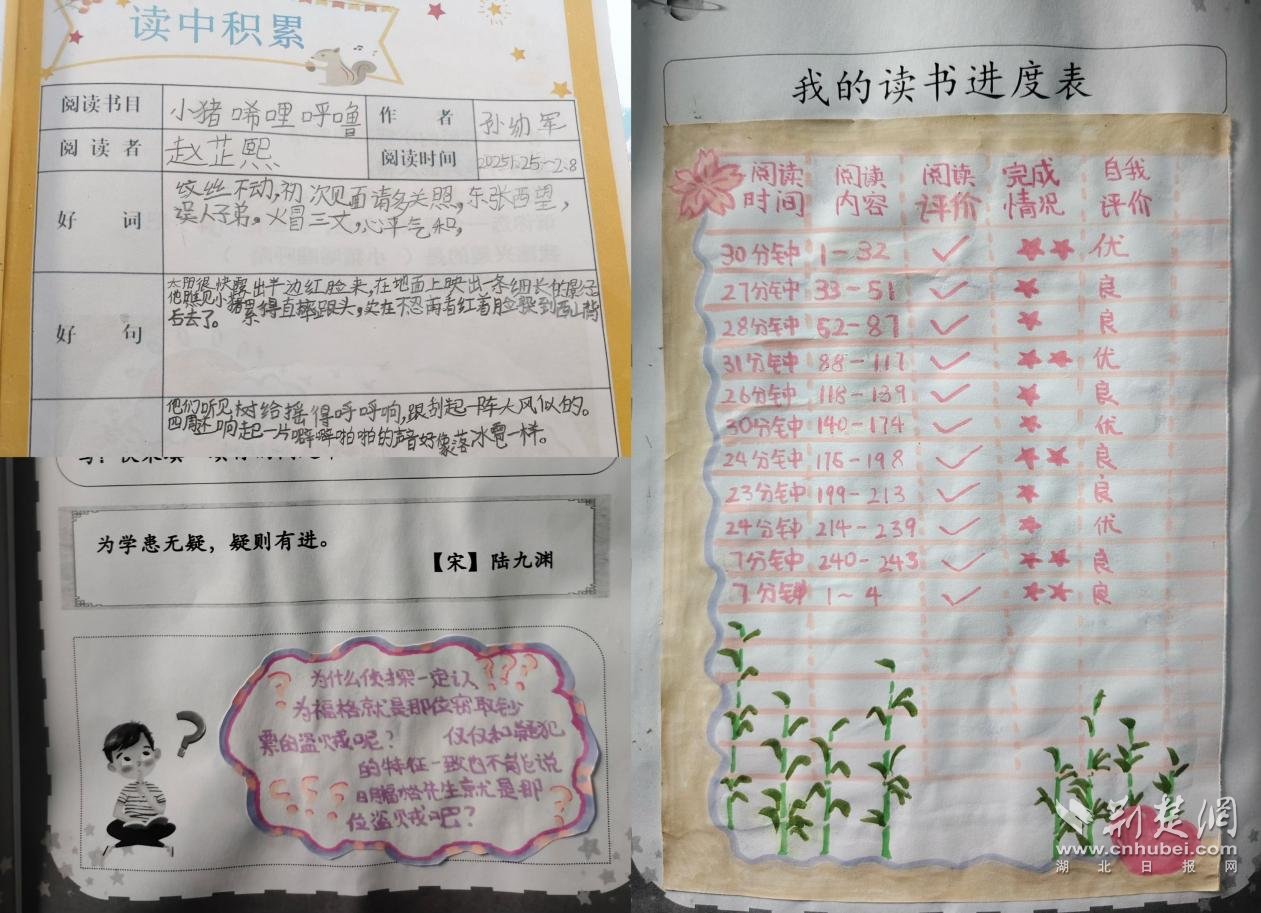 读中积累
阅读书目 小猪唏哩呼噜 作者 孙幼军
阅读者 赵芷熙 阅读时间 2025.1.25—2.8
好词 纹丝不动,初次见面请多关照,东张西望,
误人子弟。火冒三丈,心平气和,
好句 太阳很快露出半边红脸来,在地面上映出一条细长的影子
他瞧见小猪累得直摔跟头,实在不忍再看红着脸躲到西山背
后去了。
他们听见树给摇得呼呼响,跟刮起一阵大风似的。
四周还响起一片噼噼啪啪的声音好像落冰雹一样。
为学患无疑，疑则有进。
【宋】陆九渊
为什么侦探一定认
为福格就是那位窃取钞
票的盗贼呢？ 仅仅和嫌犯
的特征一致也不能说
明福格先生就是那
位盗贼吧？
我的读书进度表
阅读时间 阅读内容 阅读评价 完成情况 自我评价
30分钟 1-32 ✓ ★★ 优
27分钟 33-51 ✓ ★ 良
28分钟 52-87 ✓ ★ 良
31分钟 88-117 ✓ ★★ 优
26分钟 118-139 ✓ ★ 良
30分钟 140-174 ✓ ★ 优
24分钟 175-198 ✓ ★★ 良
23分钟 199-213 ✓ ★ 良
24分钟 214-239 ✓ ★ 优
7分钟 240-243 ✓ ★★ 良
7分钟 1~4 ✓ ★★ 良
荆楚网
www.cnhubei.com
湖北日报网